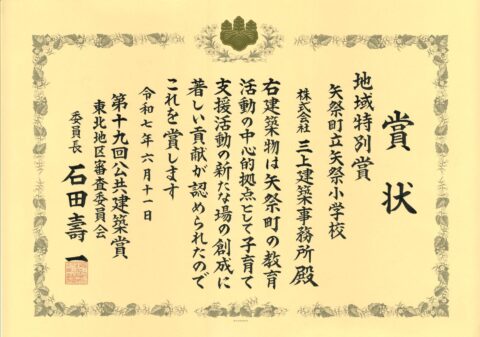 賞状
地域特別賞
矢祭町立矢祭小学校
株式会社 三上建築事務所 殿
右建築物は矢祭町の教育
活動の中心的拠点として子育て
支援活動の新たな場の創成に
著しい貢献が認められたので
これを賞します
令和七年六月十一日
第十九回公共建築賞
東北地区審査委員会
委員長 石田壽一